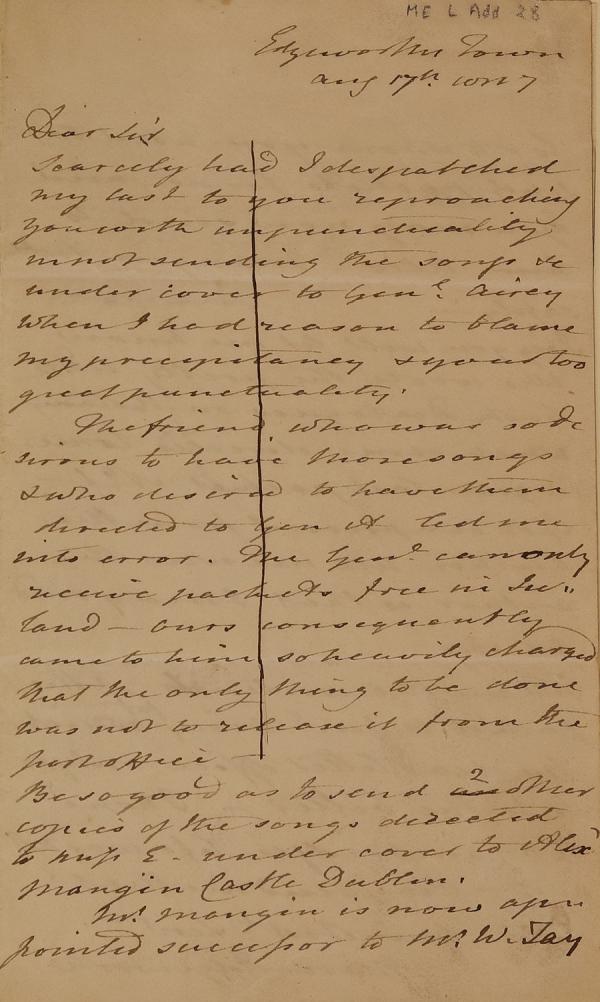 ME L Add 28
Edgeworths Town
Aug 17th 1827
Dear Sir
Scarcely had I despatched
my last to you reproaching
you with unpunctuality
in not sending the songs &c
under cover to Genl. Airey
when I had reason to blame
my precipitancy & your too
great punctuality.
The friend who was so de
sirous to have those songs
& who desired to have them
directed to Gen A led me
into error. The Genl. can only
receive packets free in Ire
land — ours consequently
came to him so heavily charged
that the only thing to be done
was not to release it from the
post office —
Be so good as to send 2 other
copies of the songs directed
to Miss E. under cover to Alexr
Mangin Castle Dublin.
Mr. Mangin is now ap
pointed successor to Mr. W. Tay